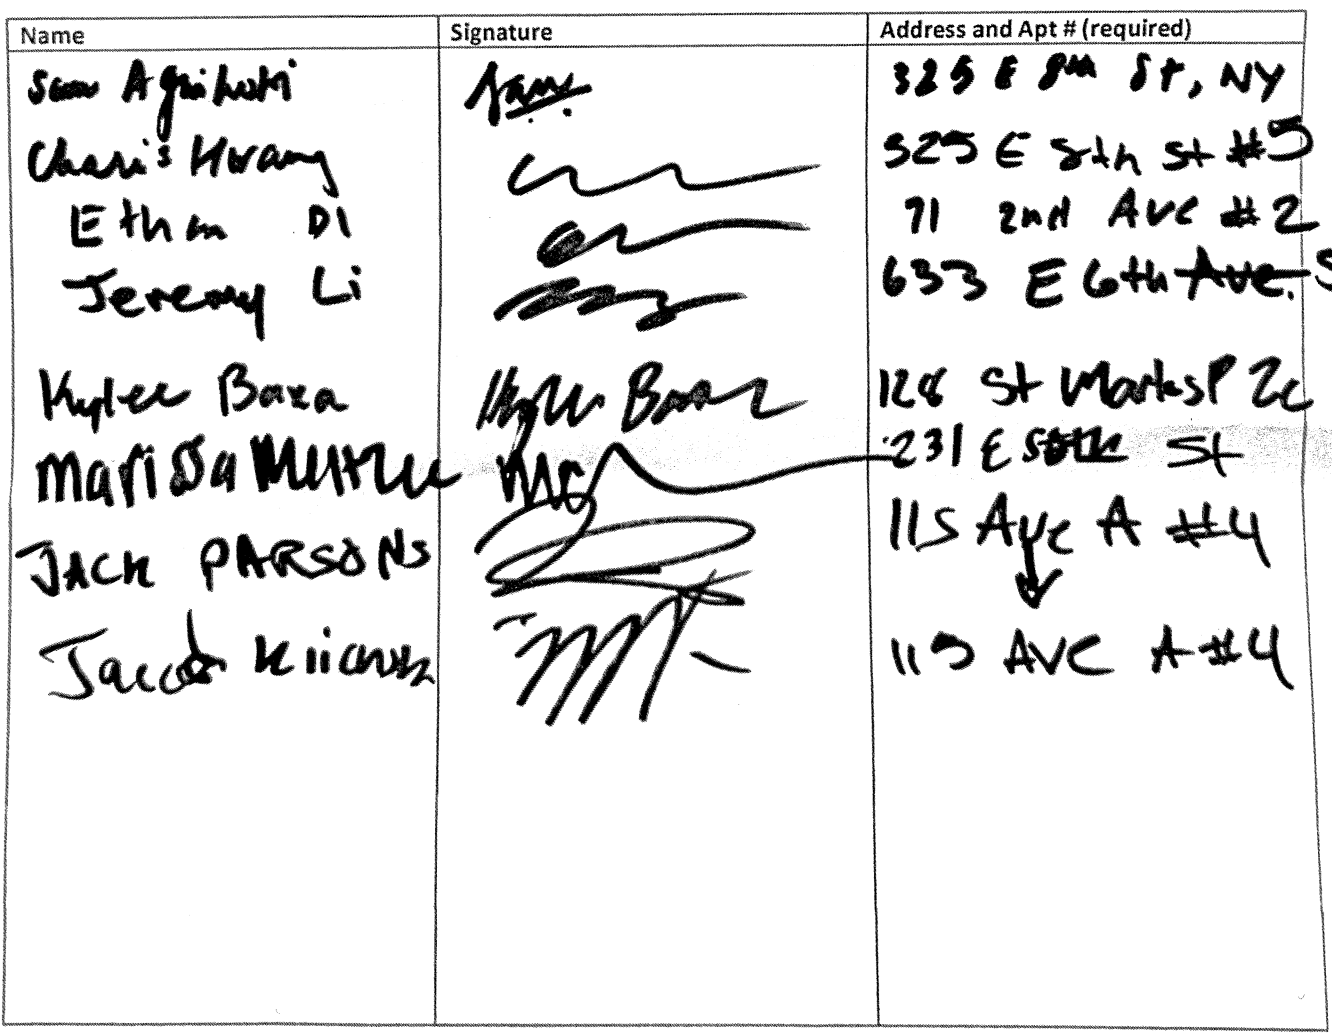 Name Signature Address and Apt # (required)
Agnihotri 325 E 8th St, NY
Charis Hwang 325 E 5th St #5
Ethan Di 71 2nd Ave #2
Jeremy Li 633 E 6th Ave. S
Kylee Baxa Kylee Baxa 128 St Marks P 2c
Marissa 231 E St
JACK PARSONS 115 Ave A #4
Jacob 115 AVE A #4